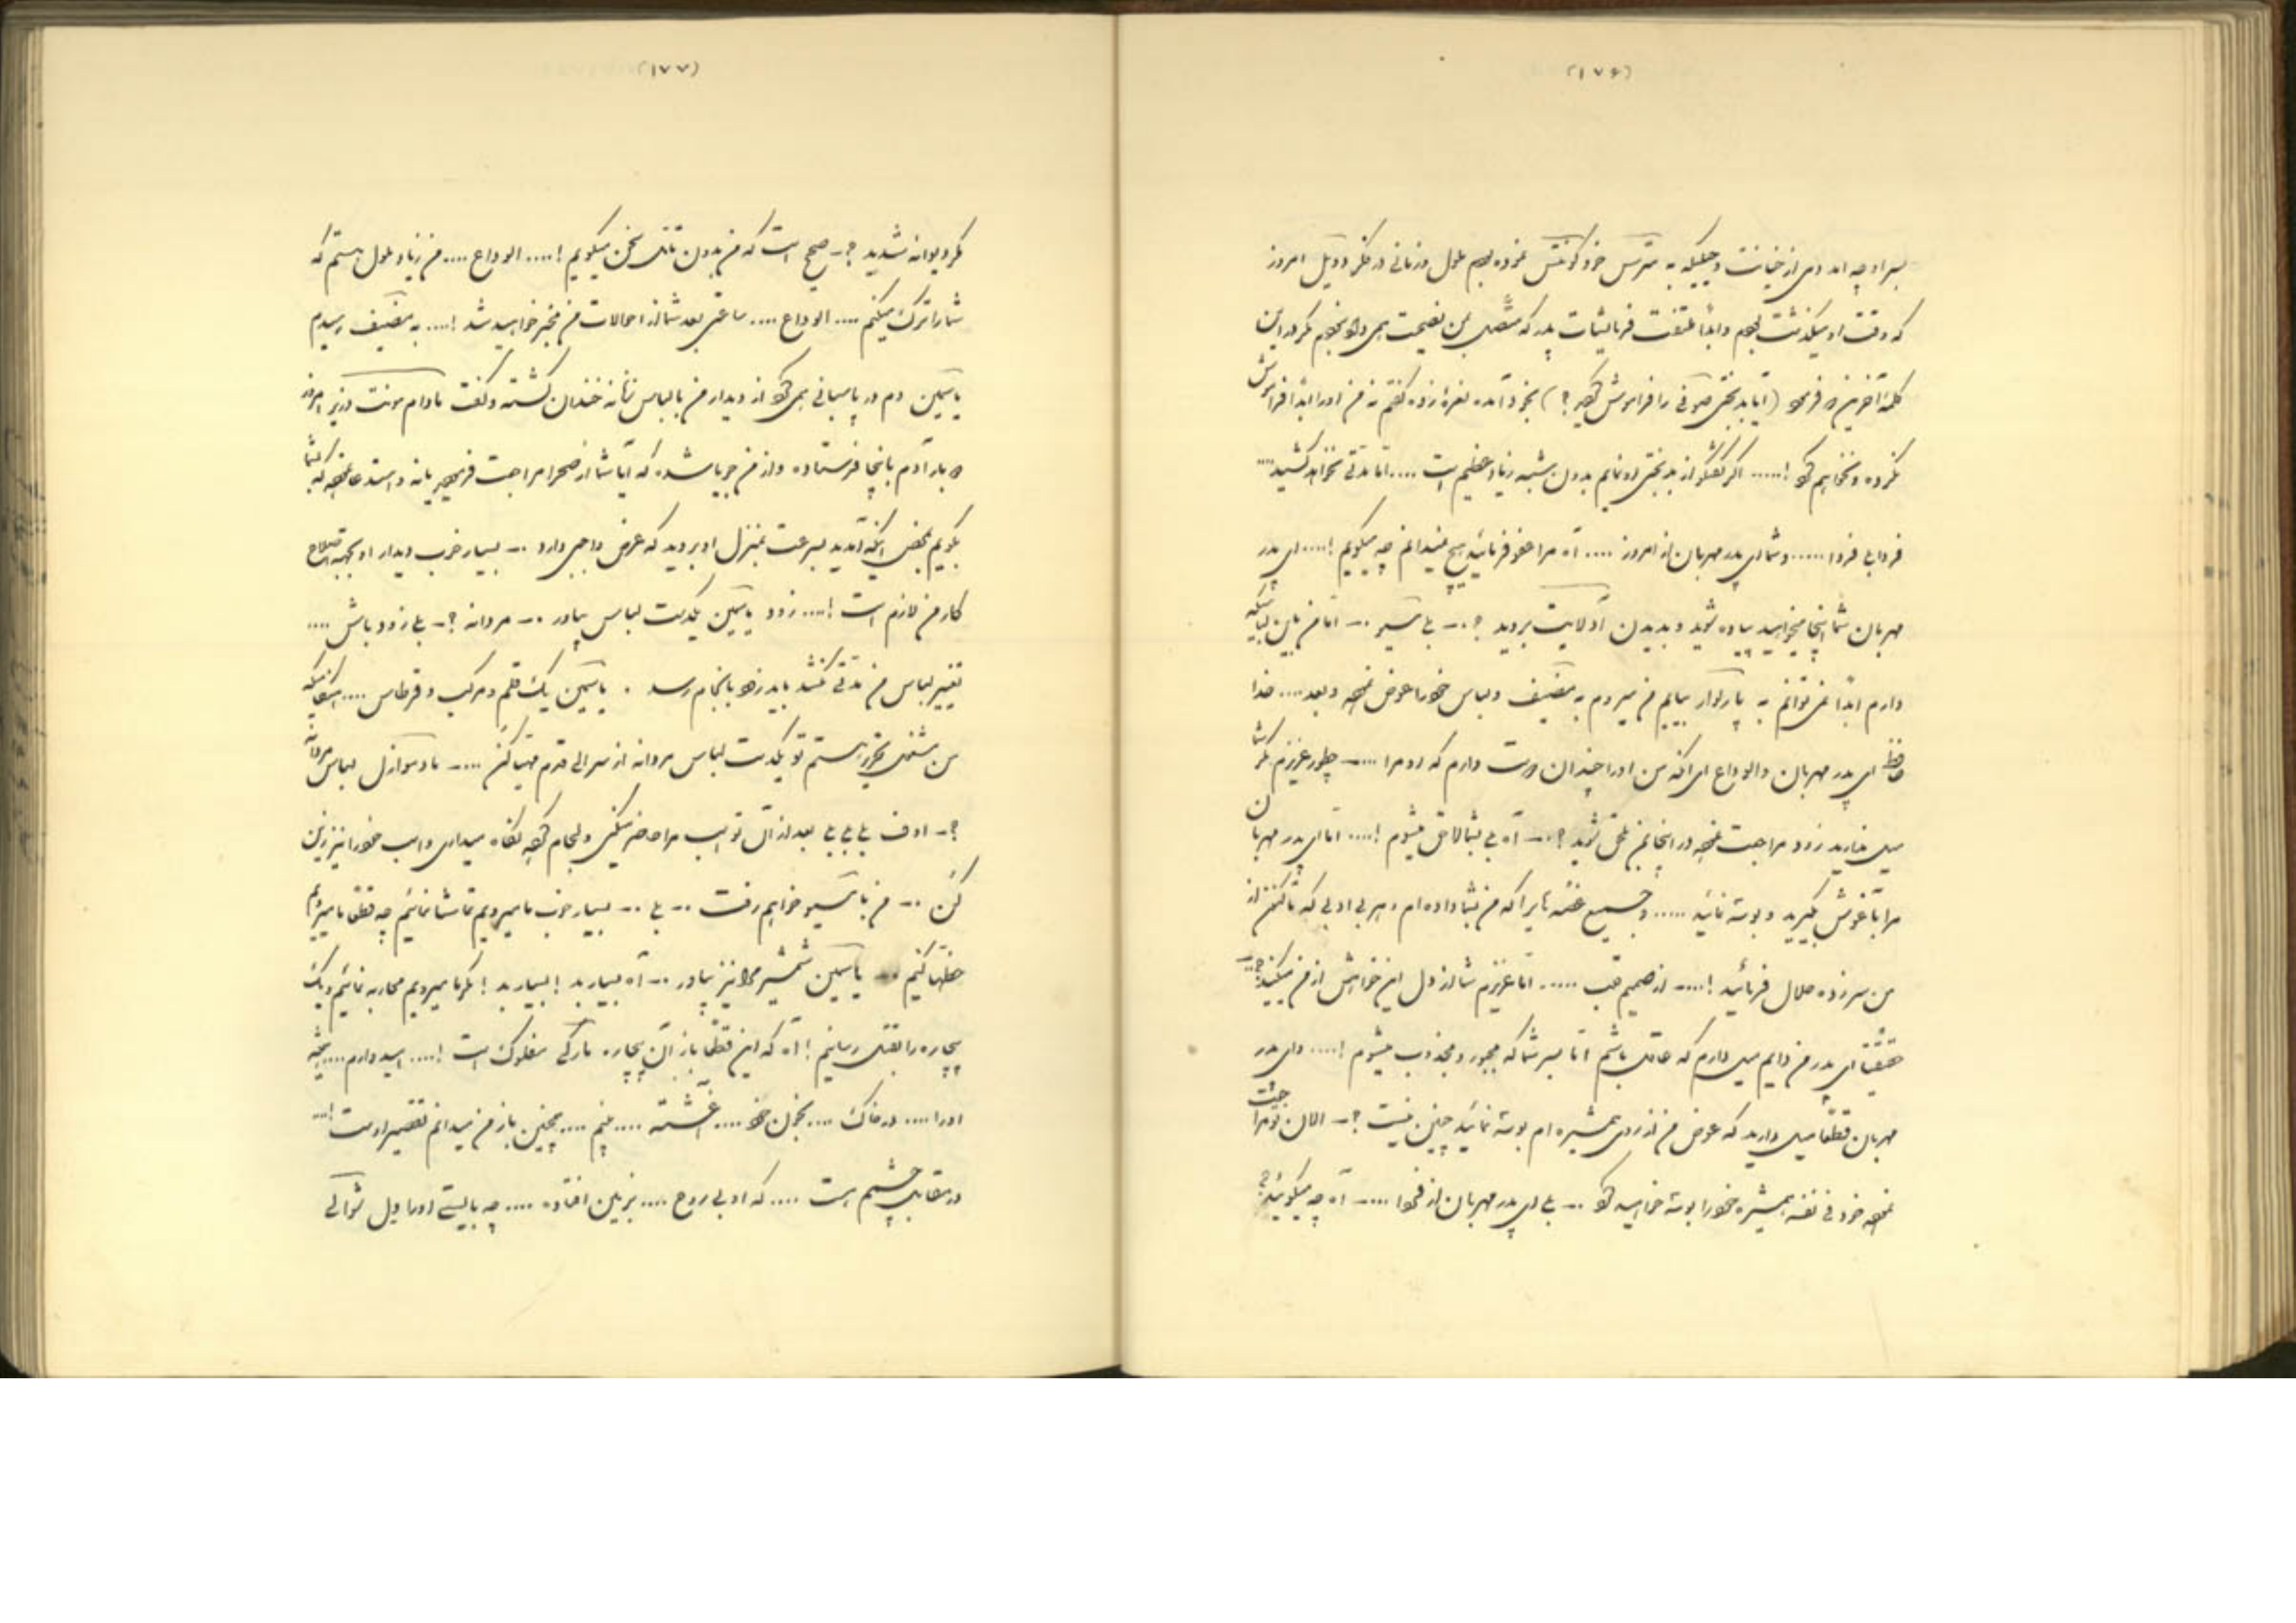 (۱۷۶)
بسر او چه آمد وی از خیانت و حیله که به مترس خود کونتس نموده بودم ملول و زمانی در فکر دوئل امروز
که وقت او میگذشت بودم و ابداً ملتفت فرمایشات پدر که متصل بمن نصیحت می داد نبودم مگر در این
کلمه آخرین او فرمود (آیا بدبختی را فراموش کردید؟) بخود آمده نعره زده گفتم نه من او را ابداً فراموش
نکرده و نخواهم کرد !..... اگر گفتگو از بدبختی او نمایم بدون شبهه زیاد عظیم است .... اما مدتی نخواهد کشید ....
فردا بی فردا ..... و شما ای پدر مهربان از امروز .... آه مرا عفو فرمائید هیچ نمیدانم چه میگویم !.... ای پدر
مهربان شما اینجا میخواهید پیاده شوید و بدیدن آدلائیت بروید ؟ -- بلی مسیو -- اما من باین لباسیکه
دارم ابداً نمی توانم به پارلوار بیایم من میروم به مضیف و لباس خود را عوض نموده و بعد .... خدا
حافظ ای پدر مهربان و الوداع ای آنکه من او را چندان دوست دارم که او مرا .... -- چطور عزیزم مگر شما
میل ندارید زود مراجعت نموده در اینجا بمن ملحق شوید ؟ -- آه بلی بشما لاحق میشوم !.... اما ای پدر مهربان
مرا بآغوش بگیرید و بوسه نمائید ..... و جمیع غصه هایرا که من بشما داده ام و هر بی ادبی که تاکنون از
من سر زده حلال فرمائید !.... -- از صمیم قلب ..... اما عزیزم شما از دل این خواهش از من میکنید؟ --
حقیقتاً ای پدر من دایم میل دارم که عاقل باشم اما بسر شما که مجبور و مجذوب میشوم !.... وای پدر
مهربان قطعاً میل دارید که عوض من از روی همشیره ام بوسه نمائید چنین نیست ؟ -- الان تو مراجعت
نموده خود فی نفسه همشیره خود را بوسه خواهید کرد -- بلی ای پدر مهربان از فردا .... -- آه چه میگوئید؟
(۱۷۷)
مگر دیوانه شدید ؟ -- صحیح است که من بدون تأمل سخن میگویم !.... الوداع .... من زیاد ملول هستم که
شما را ترک میکنم .... الوداع .... ساعتی بعد شما از احوالات من مخبر خواهید شد !.... به مضیف رسیدم
یاسمین دم در پاسبانی می کرد از دیدار من بالباس زنانه خندان گشته و گفت مادام مونت درین امروز
ه بار آدم باینجا فرستاده و از من جویا شده که آیا شما از صحرا مراجعت فرمودید یا نه و استدعا نموده که بشما
بگویم بمحض اینکه آمدید بسرعت بمنزل او بروید که عرض واجبی دارد -- بسیار خوب دیدار او بجهة اصلاح
کار من لازم است !.... زود یاسمین یکدست لباس بیاور -- مردانه ؟ -- بلی زود باش ....
تغییر لباس من مدتی نکشد باید زود بانجام رسد . یاسمین یک قلم و مرکب و قرطاس .... هنگامیکه
من مشغول تحریر هستم تو یکدست لباس مردانه از سر الی قدم مهیا کن .... -- مادموازل لباس مردانه
؟ -- اوف بلی بلی بلی بعد از آن تو اسب مرا حاضر میکنی و لجام کرده نگاه میداری و اسب خود را نیز زین
کن -- من با مسیو خواهم رفت -- بلی -- بسیار خوب ما میرویم تماشا نمائیم چه قطعاً ما میرویم
حظها کنیم -- یاسمین شمشیر مرا نیز بیاور -- آه بسیار بد ! بسیار بد ! مگر ما میرویم محاربه نمائیم و یک
بیچاره را بقتل رسانیم ! آه که این قطعاً باز آن بیچاره مارکی مفلوک است !.... امید دارم ....
او را .... در خاک .... بخون خود .... آغشته .... بینم .... همچنین باز من میدانم تقصیر اوست !...
در مقابل چشمم است .... که او بی روح .... بزمین افتاده .... چه بایستی او را دیل شوالی